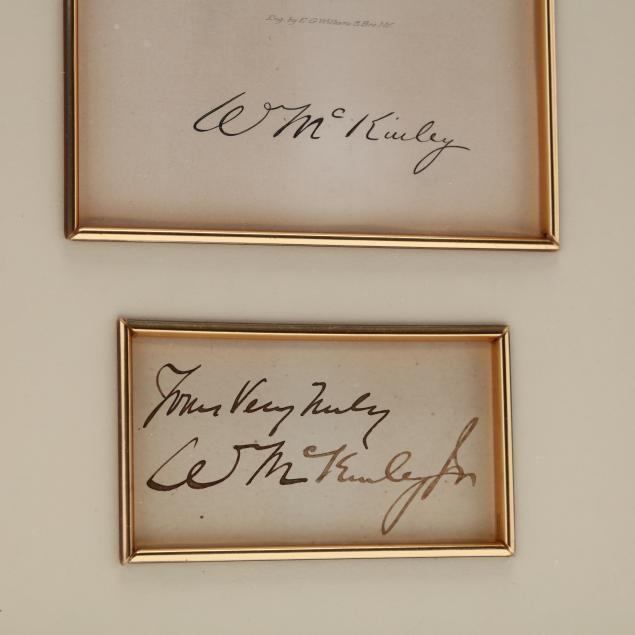 Eng. by E. G. Williams & Bro. NY
W McKinley
Yours Very Truly
W McKinley Jr